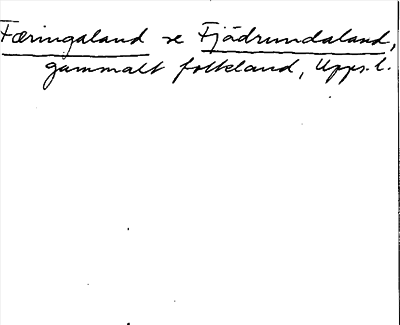 Færingaland se Fjädrundaland,
gammalt folkland, Upps. l.